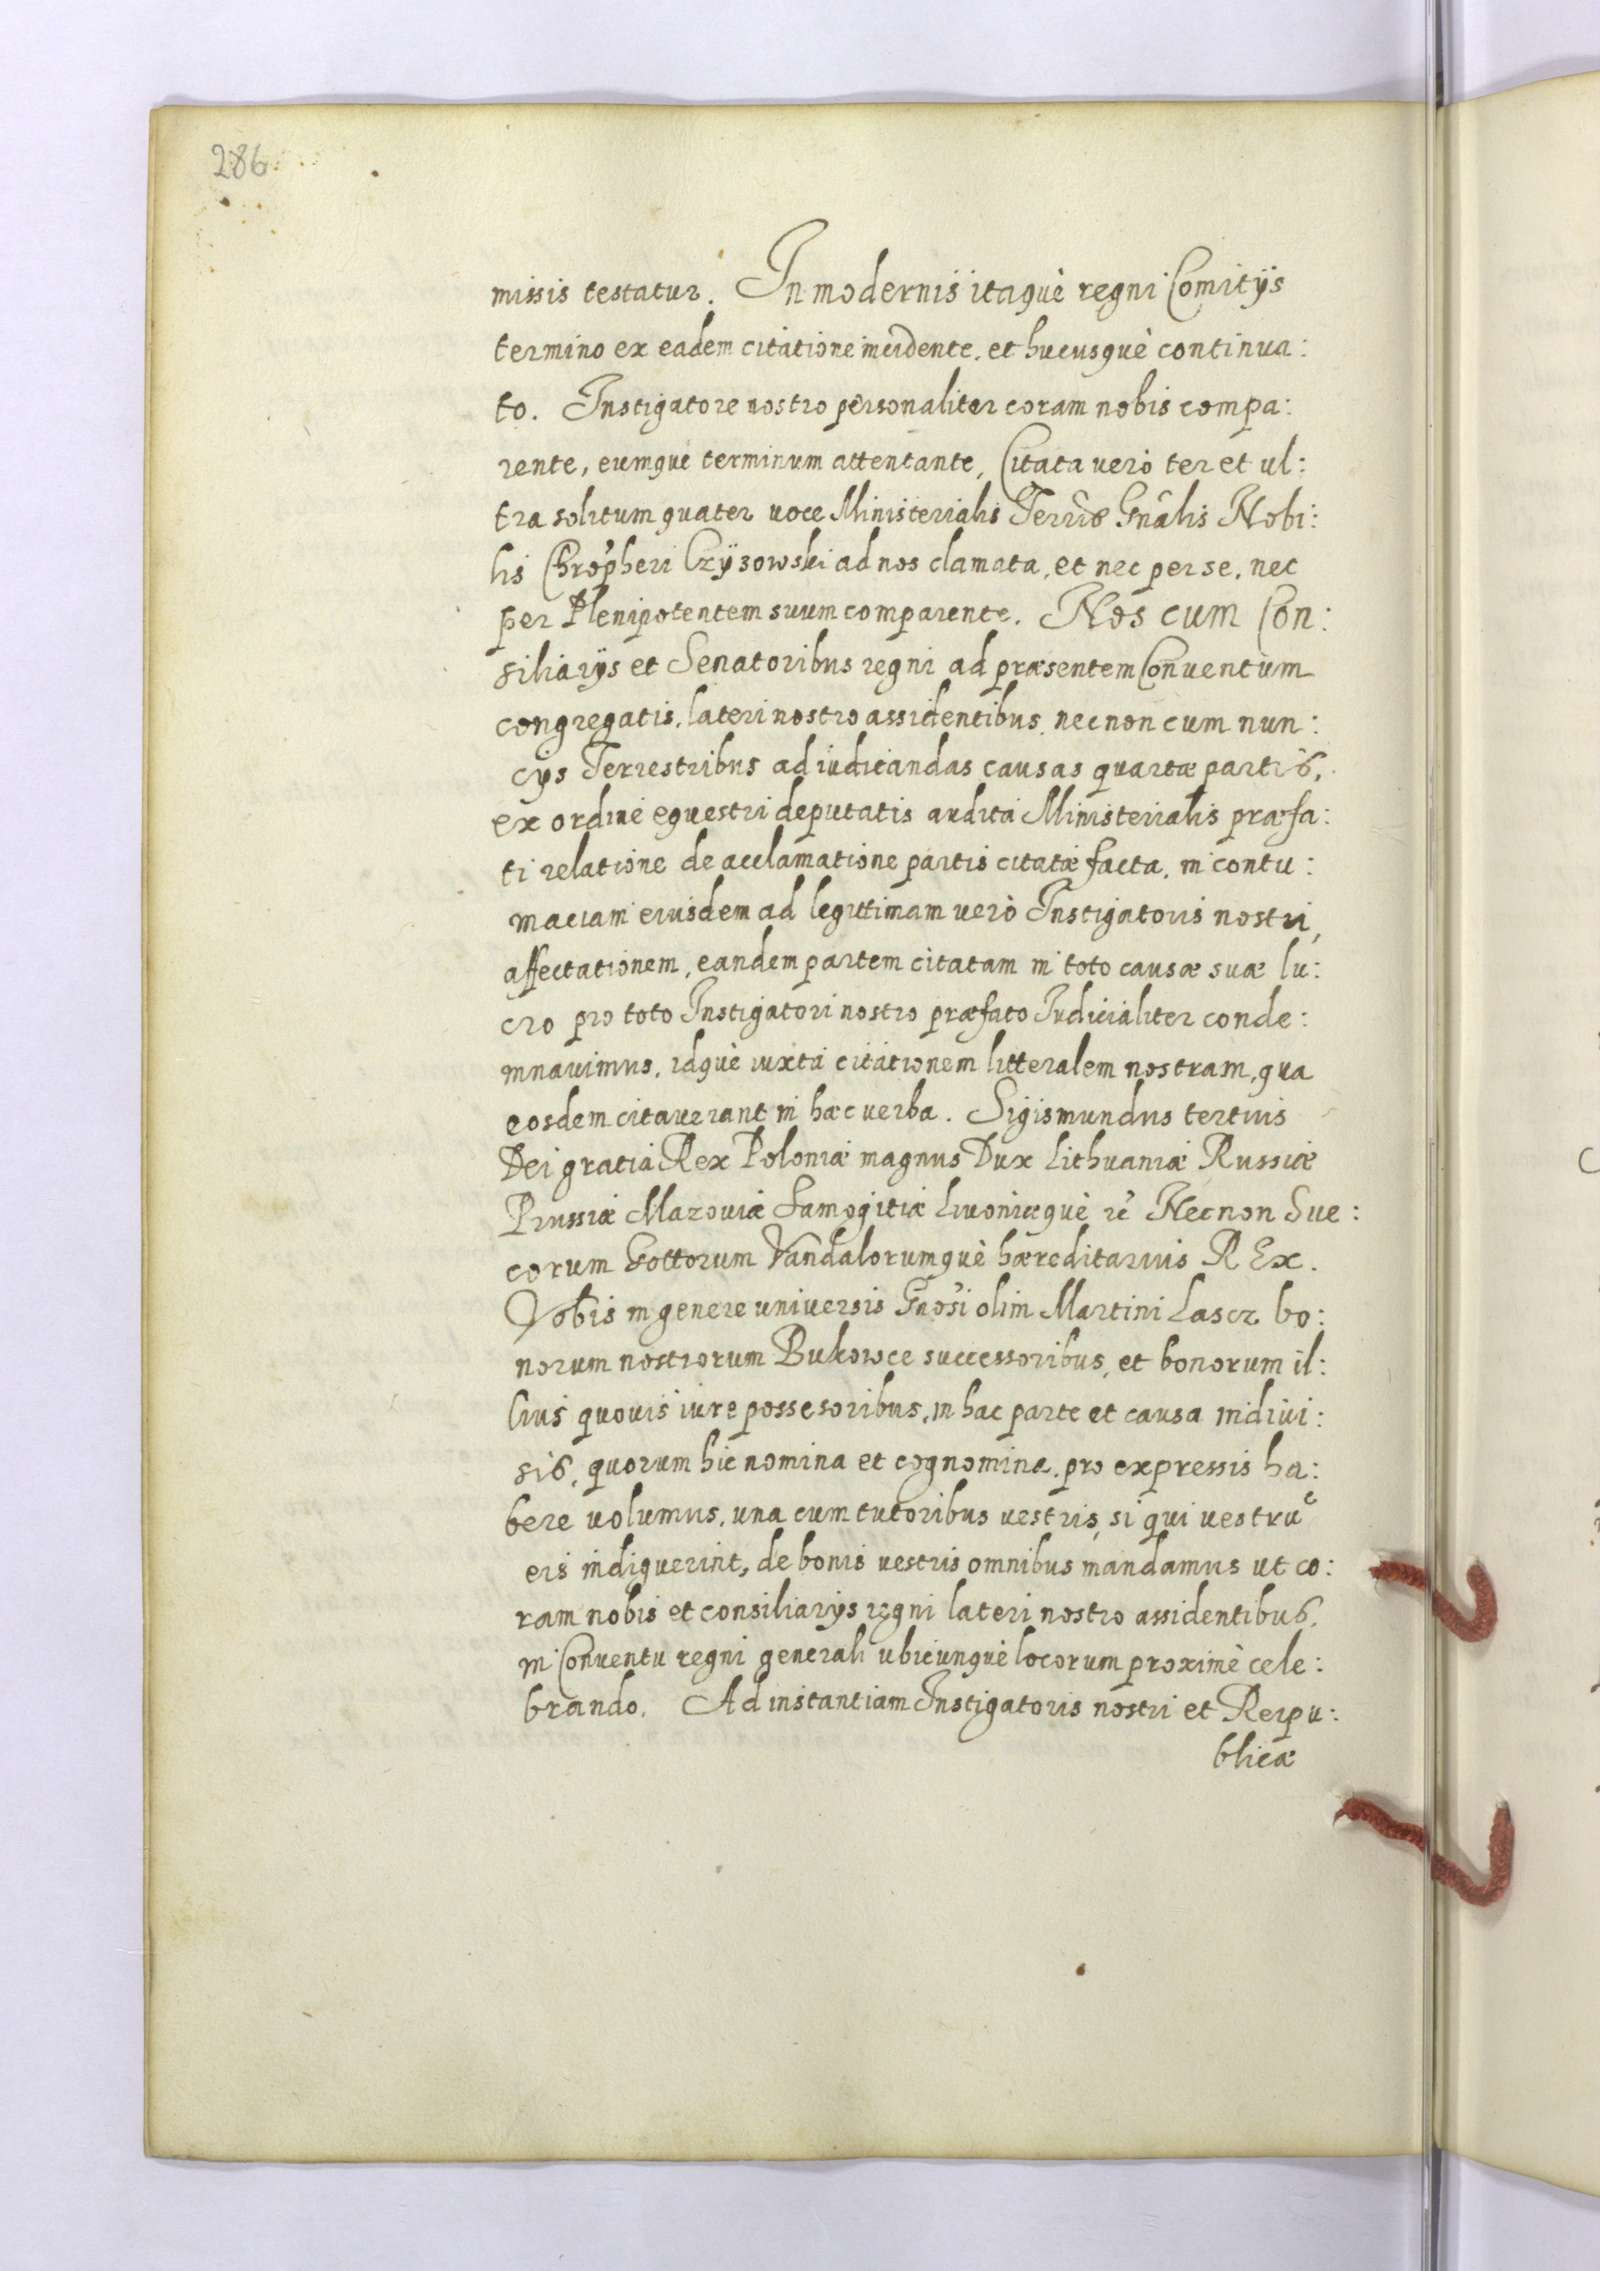 286
missis testatur. In modernis itaquè regni Comitÿs
termino ex eadem citatione incidente, et hucusquè continua:
to. Instigatore nostro personaliter coram nobis compa:
rente, eumquè terminum attentante, Citata verò ter et ul:
tra solitum quater voce Ministerialis Terrīs Gnâlis Nobi:
lis Chrõpheri Czÿzowski ad nos clamata, et nec per se, nec
per Plenipotentem suum comparente. Nos cum Con:
siliarÿs et Senatoribus regni ad præsentem Conventum
congregatis, lateri nostro assidentibus, necnon cum nun:
cÿs Terrestribus ad iudicandas causas quartæ partis,
ex ordine equestri deputatis audita Ministerialis præfa:
ti relatione de acclamatione partis citatæ facta, in contu:
maciam eiusdem ad legittimam verò Instigatoris nostri,
affectationem, eandem partem citatam in toto causæ suæ lu:
cro pro toto Instigatori nostro præfato Iudicialiter conde:
mnauimus, idquè iuxtà citationem litteralem nostram, qua
eosdem citauerant in hæc verba. Sigismundus tertius
Dei gratia Rex Poloniæ magnus Dux Lithuaniæ Russiæ
Prussiæ Mazouiæ Samogitiæ Liuoniæquè &c̃ Necnon Sue:
corum Gottorum Vandalorumquè hæreditarius REx.
Vobis in genere universis Gnõsi olim Martini Lascz bo:
norum nostrorum Bukowce successoribus, et bonorum il:
lius quovis iure possesoribus, in hac parte et causa indivi:
sis, quorum hic nomina et cognomina, pro expressis ha:
bere volumus, una cum tutoribus vestris, si qui vestrũ
eis indiguerint, de bonis vestris omnibus mandamus ut co:
ram nobis et consiliarÿs regni lateri nostro assidentibus,
in Conuentu regni generali ubicunquè locorum proximè cele:
brando. Ad instantiam Instigatoris nostri et Reipu:
blicæ